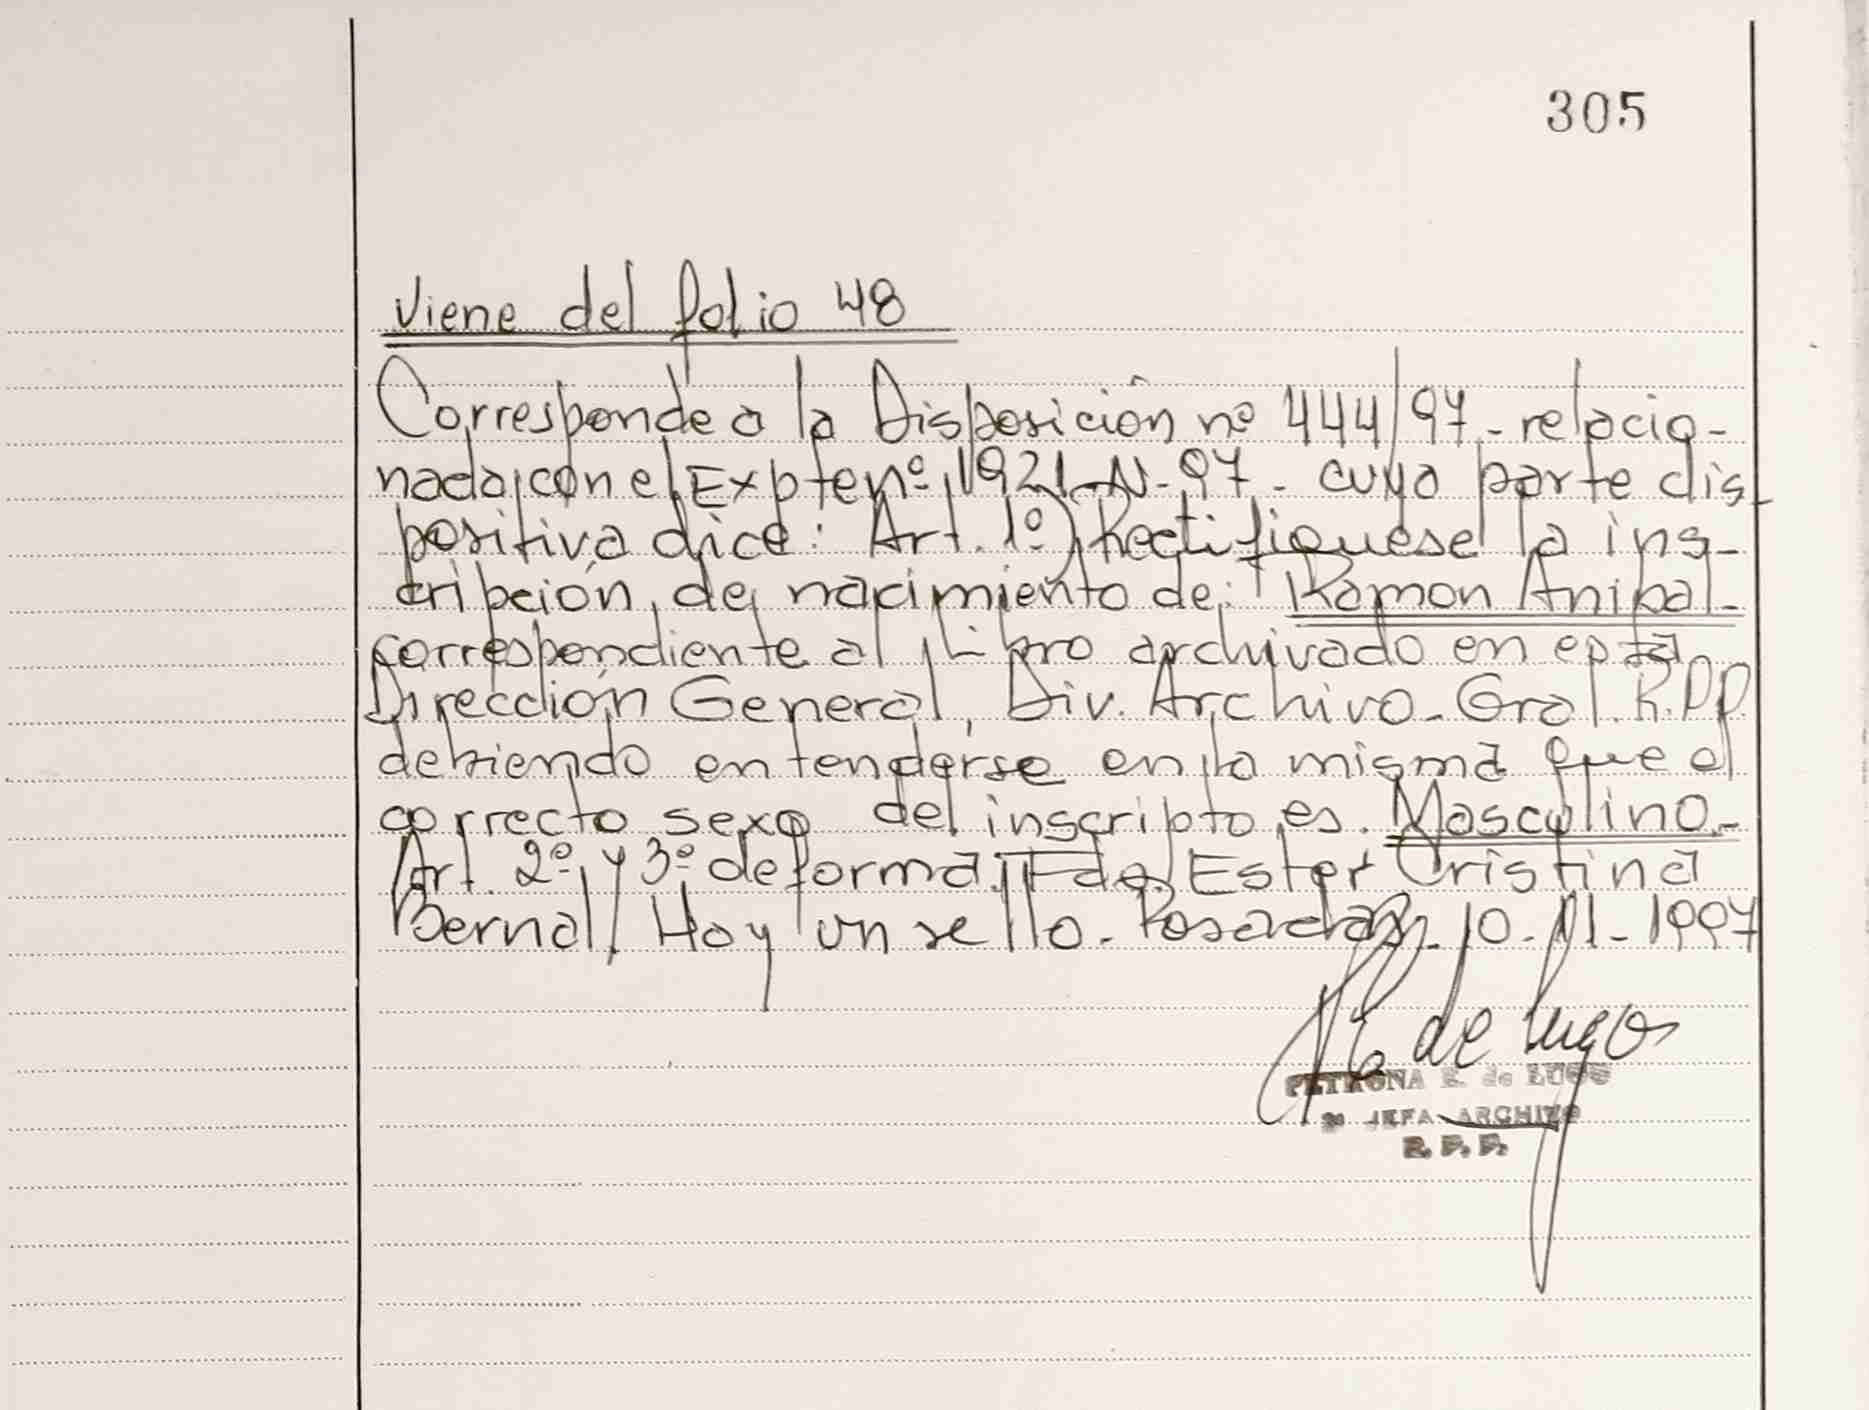 305
Viene del folio 48
Corresponde a la Disposición nº 444/97 - relacio-
nada con el Expte nº 1921-N-97 - cuya parte dis-
positiva dice: Art. 1º) Rectifíquese la ins-
cripción de nacimiento de: Ramon Anibal-
correspondiente al Libro archivado en esta
Dirección General, Div. Archivo-Gral. R.P.P.
debiendo entenderse en la misma que el
correcto sexo del inscripto es. Masculino.-
Art. 2º y 3º de forma. Fdo. Ester Cristina
Bernal. Hay un sello. Posadas. 10-11-1997
de Lugo
PETRONA E. de LUGO
2º JEFA ARCHIVO
R. P. P.